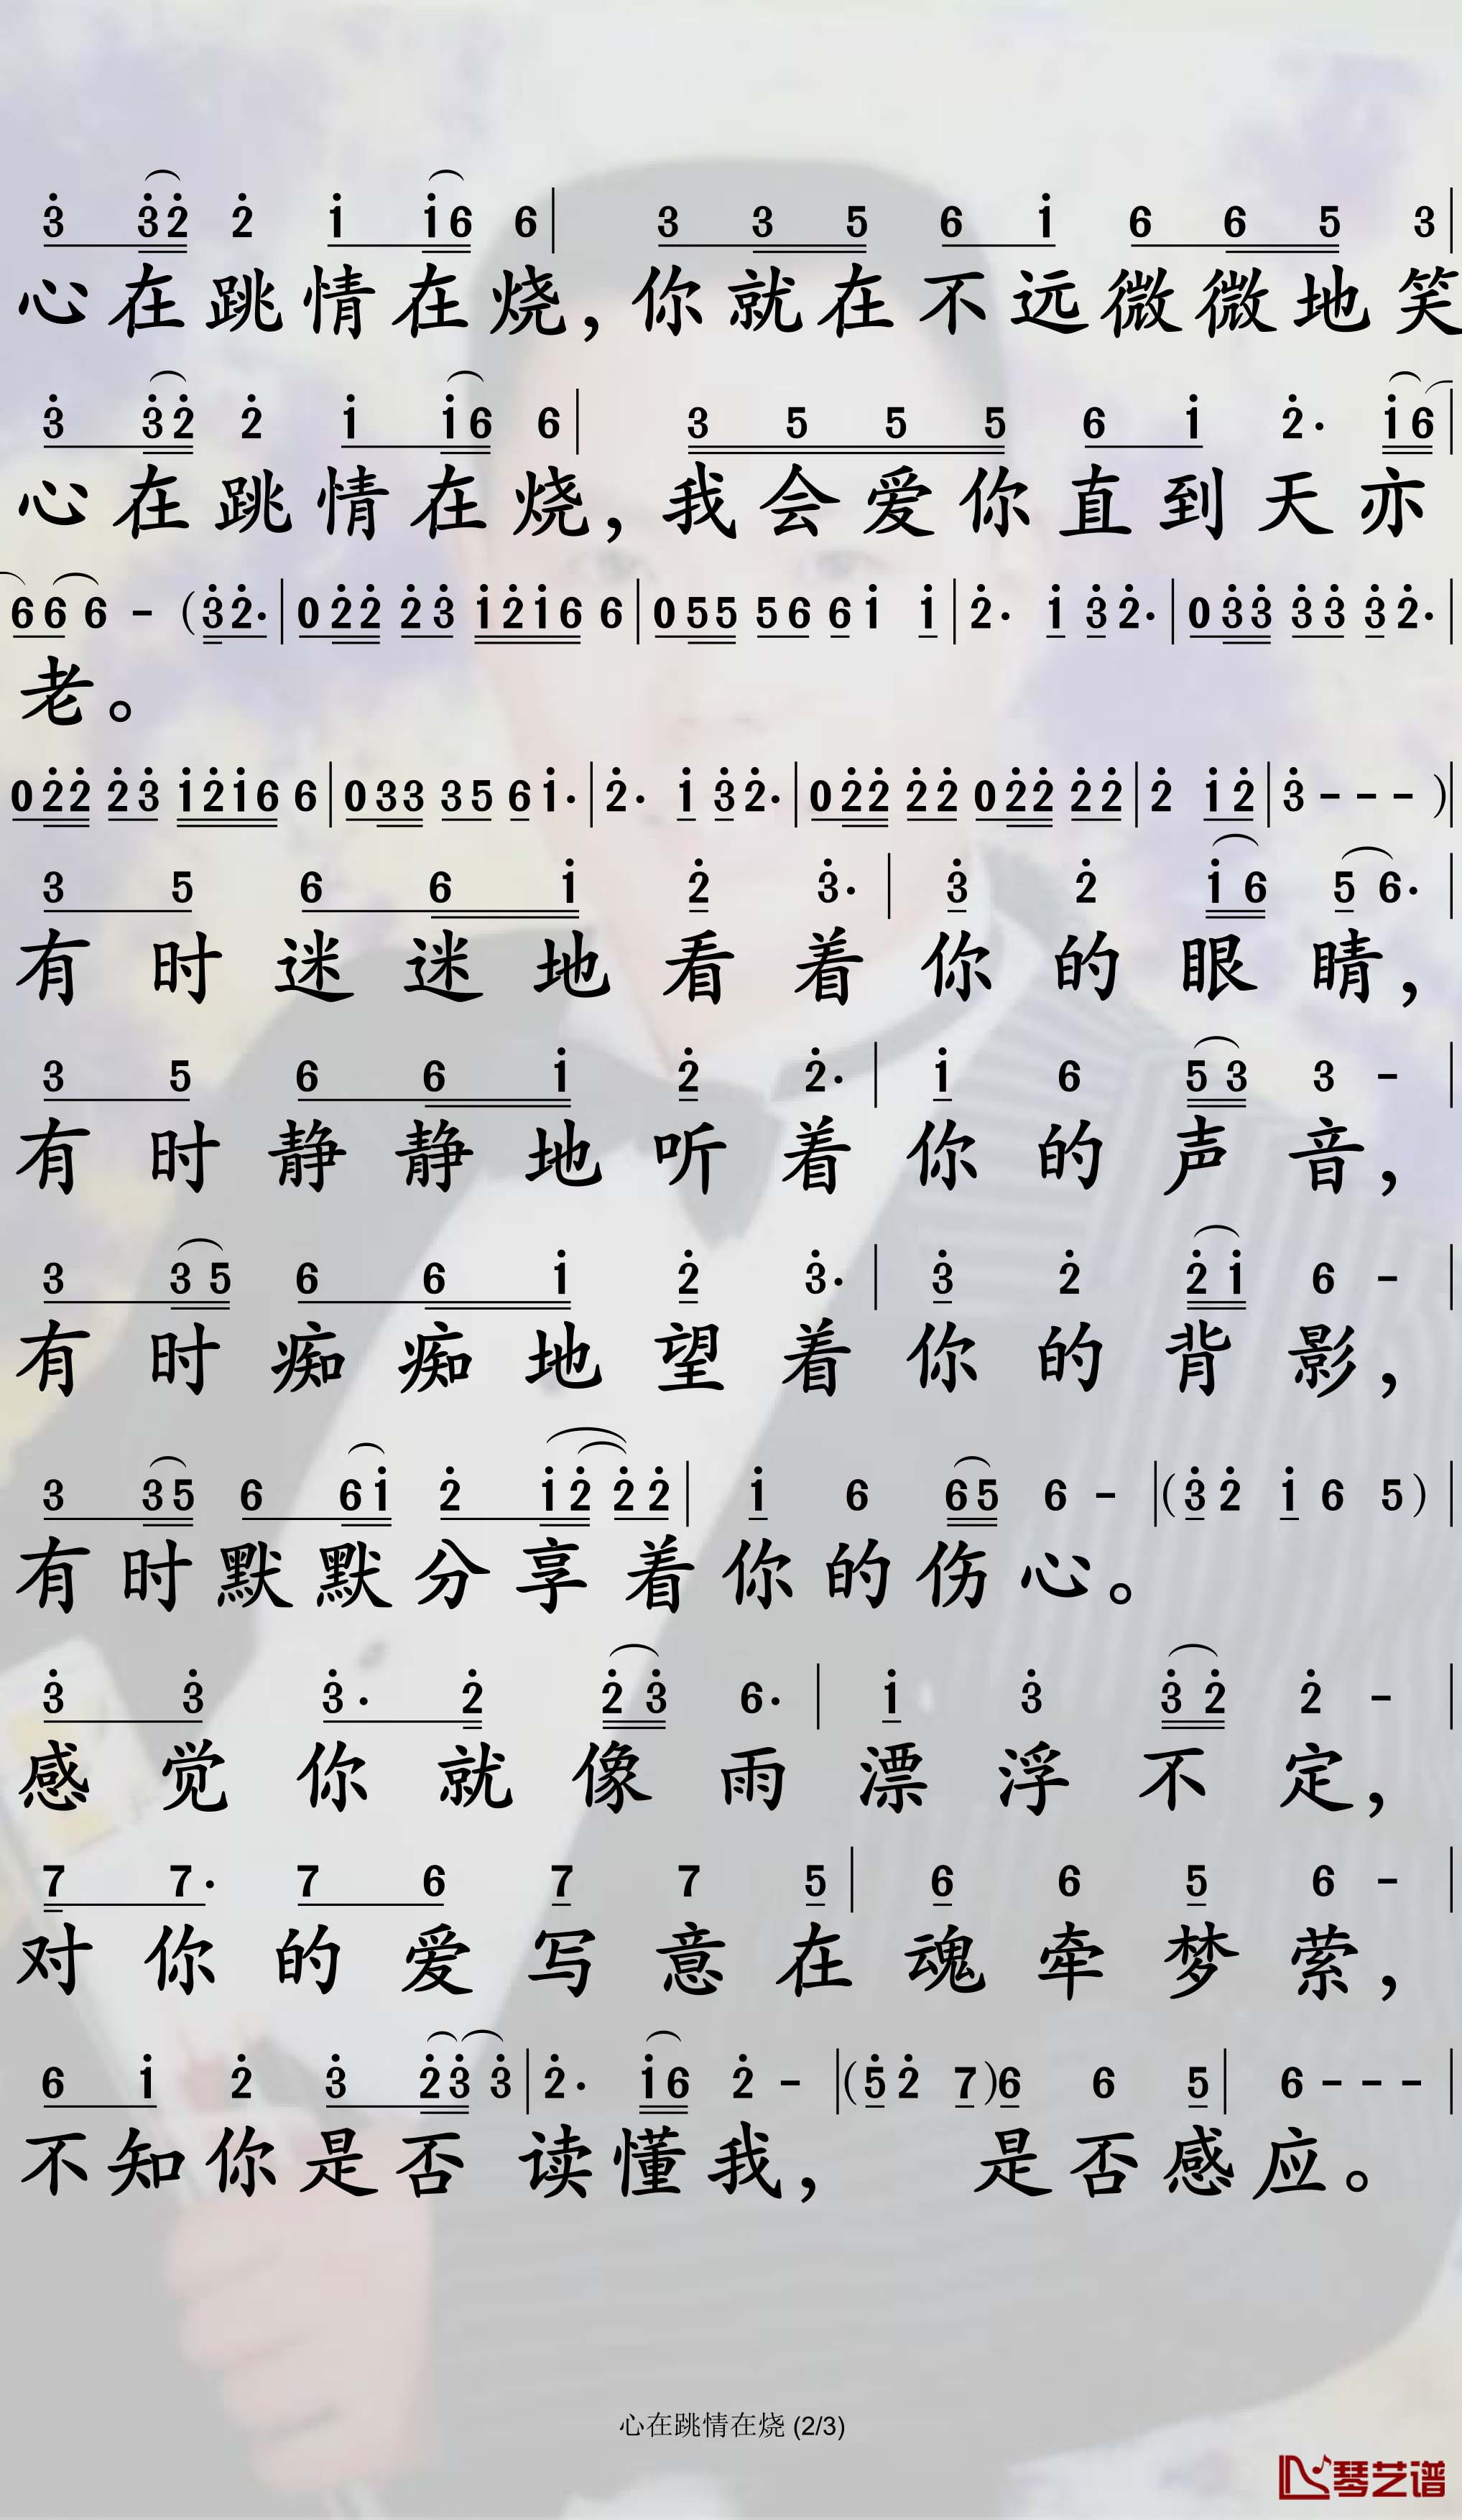 3̇ 3̇2̇ 2̇ 1̇ 1̇6 6 | 3 3 5 6 1̇ 6 6 5 3 |
心在跳情在烧，你就在不远微微地笑
3̇ 3̇2̇ 2̇ 1̇ 1̇6 6 | 3 5 5 5 6 1̇ 2̇· 1̇6 |
心在跳情在烧，我会爱你直到天亦
66 6 - (3̇2̇· | 0 2̇2̇ 2̇3̇ 1̇2̇1̇6 6 | 0 55 56 61̇ 1̇ | 2̇· 1̇ 3̇2̇· | 0 3̇3̇ 3̇3̇ 3̇2̇· |
老。
0 2̇2̇ 2̇3̇ 1̇2̇1̇6 6 | 0 33 35 61̇· | 2̇· 1̇ 3̇2̇· | 0 2̇2̇ 2̇2̇ 0 2̇2̇ 2̇2̇ | 2̇ 1̇2̇ | 3̇ - - - ) |
3 5 6 6 1̇ 2̇ 3̇· | 3̇ 2̇ 1̇6 56· |
有时迷迷地看着你的眼睛，
3 5 6 6 1̇ 2̇ 2̇· | 1̇ 6 53 3 - |
有时静静地听着你的声音，
3 35 6 6 1̇ 2̇ 3̇· | 3̇ 2̇ 2̇1̇ 6 - |
有时痴痴地望着你的背影，
3 35 6 61̇ 2̇ 1̇2̇ 2̇2̇ | 1̇ 6 65 6 - | (3̇2̇ 1̇ 6 5) |
有时默默分享着你的伤心。
3̇ 3̇ 3̇· 2̇ 2̇3̇ 6· | 1̇ 3̇ 3̇2̇ 2̇ - |
感觉你就像雨漂浮不定，
7 7· 7 6 7 7 5 | 6 6 5 6 - |
对你的爱写意在魂牵梦萦，
6 1̇ 2̇ 3̇ 2̇3̇ 3̇ | 2̇· 1̇6 2̇ - | (5̇2̇ 7) 6 6 5 | 6 - - - |
不知你是否读懂我，是否感应。
心在跳情在烧 (2/3)
琴艺谱